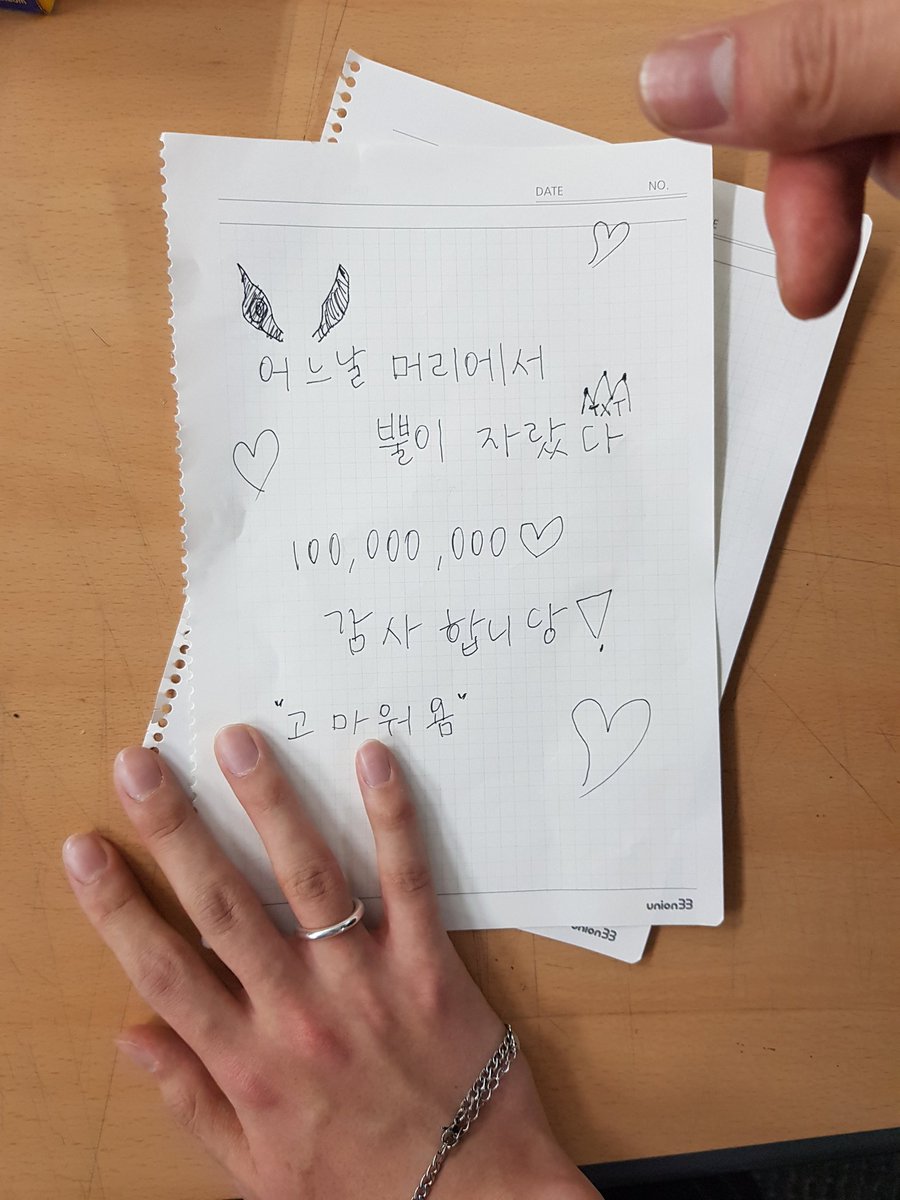 DATE NO.
어느날 머리에서
TXT
뿔이 자랐다
100,000,000♡
감사합니당!
"고마워욤"
union33
union33